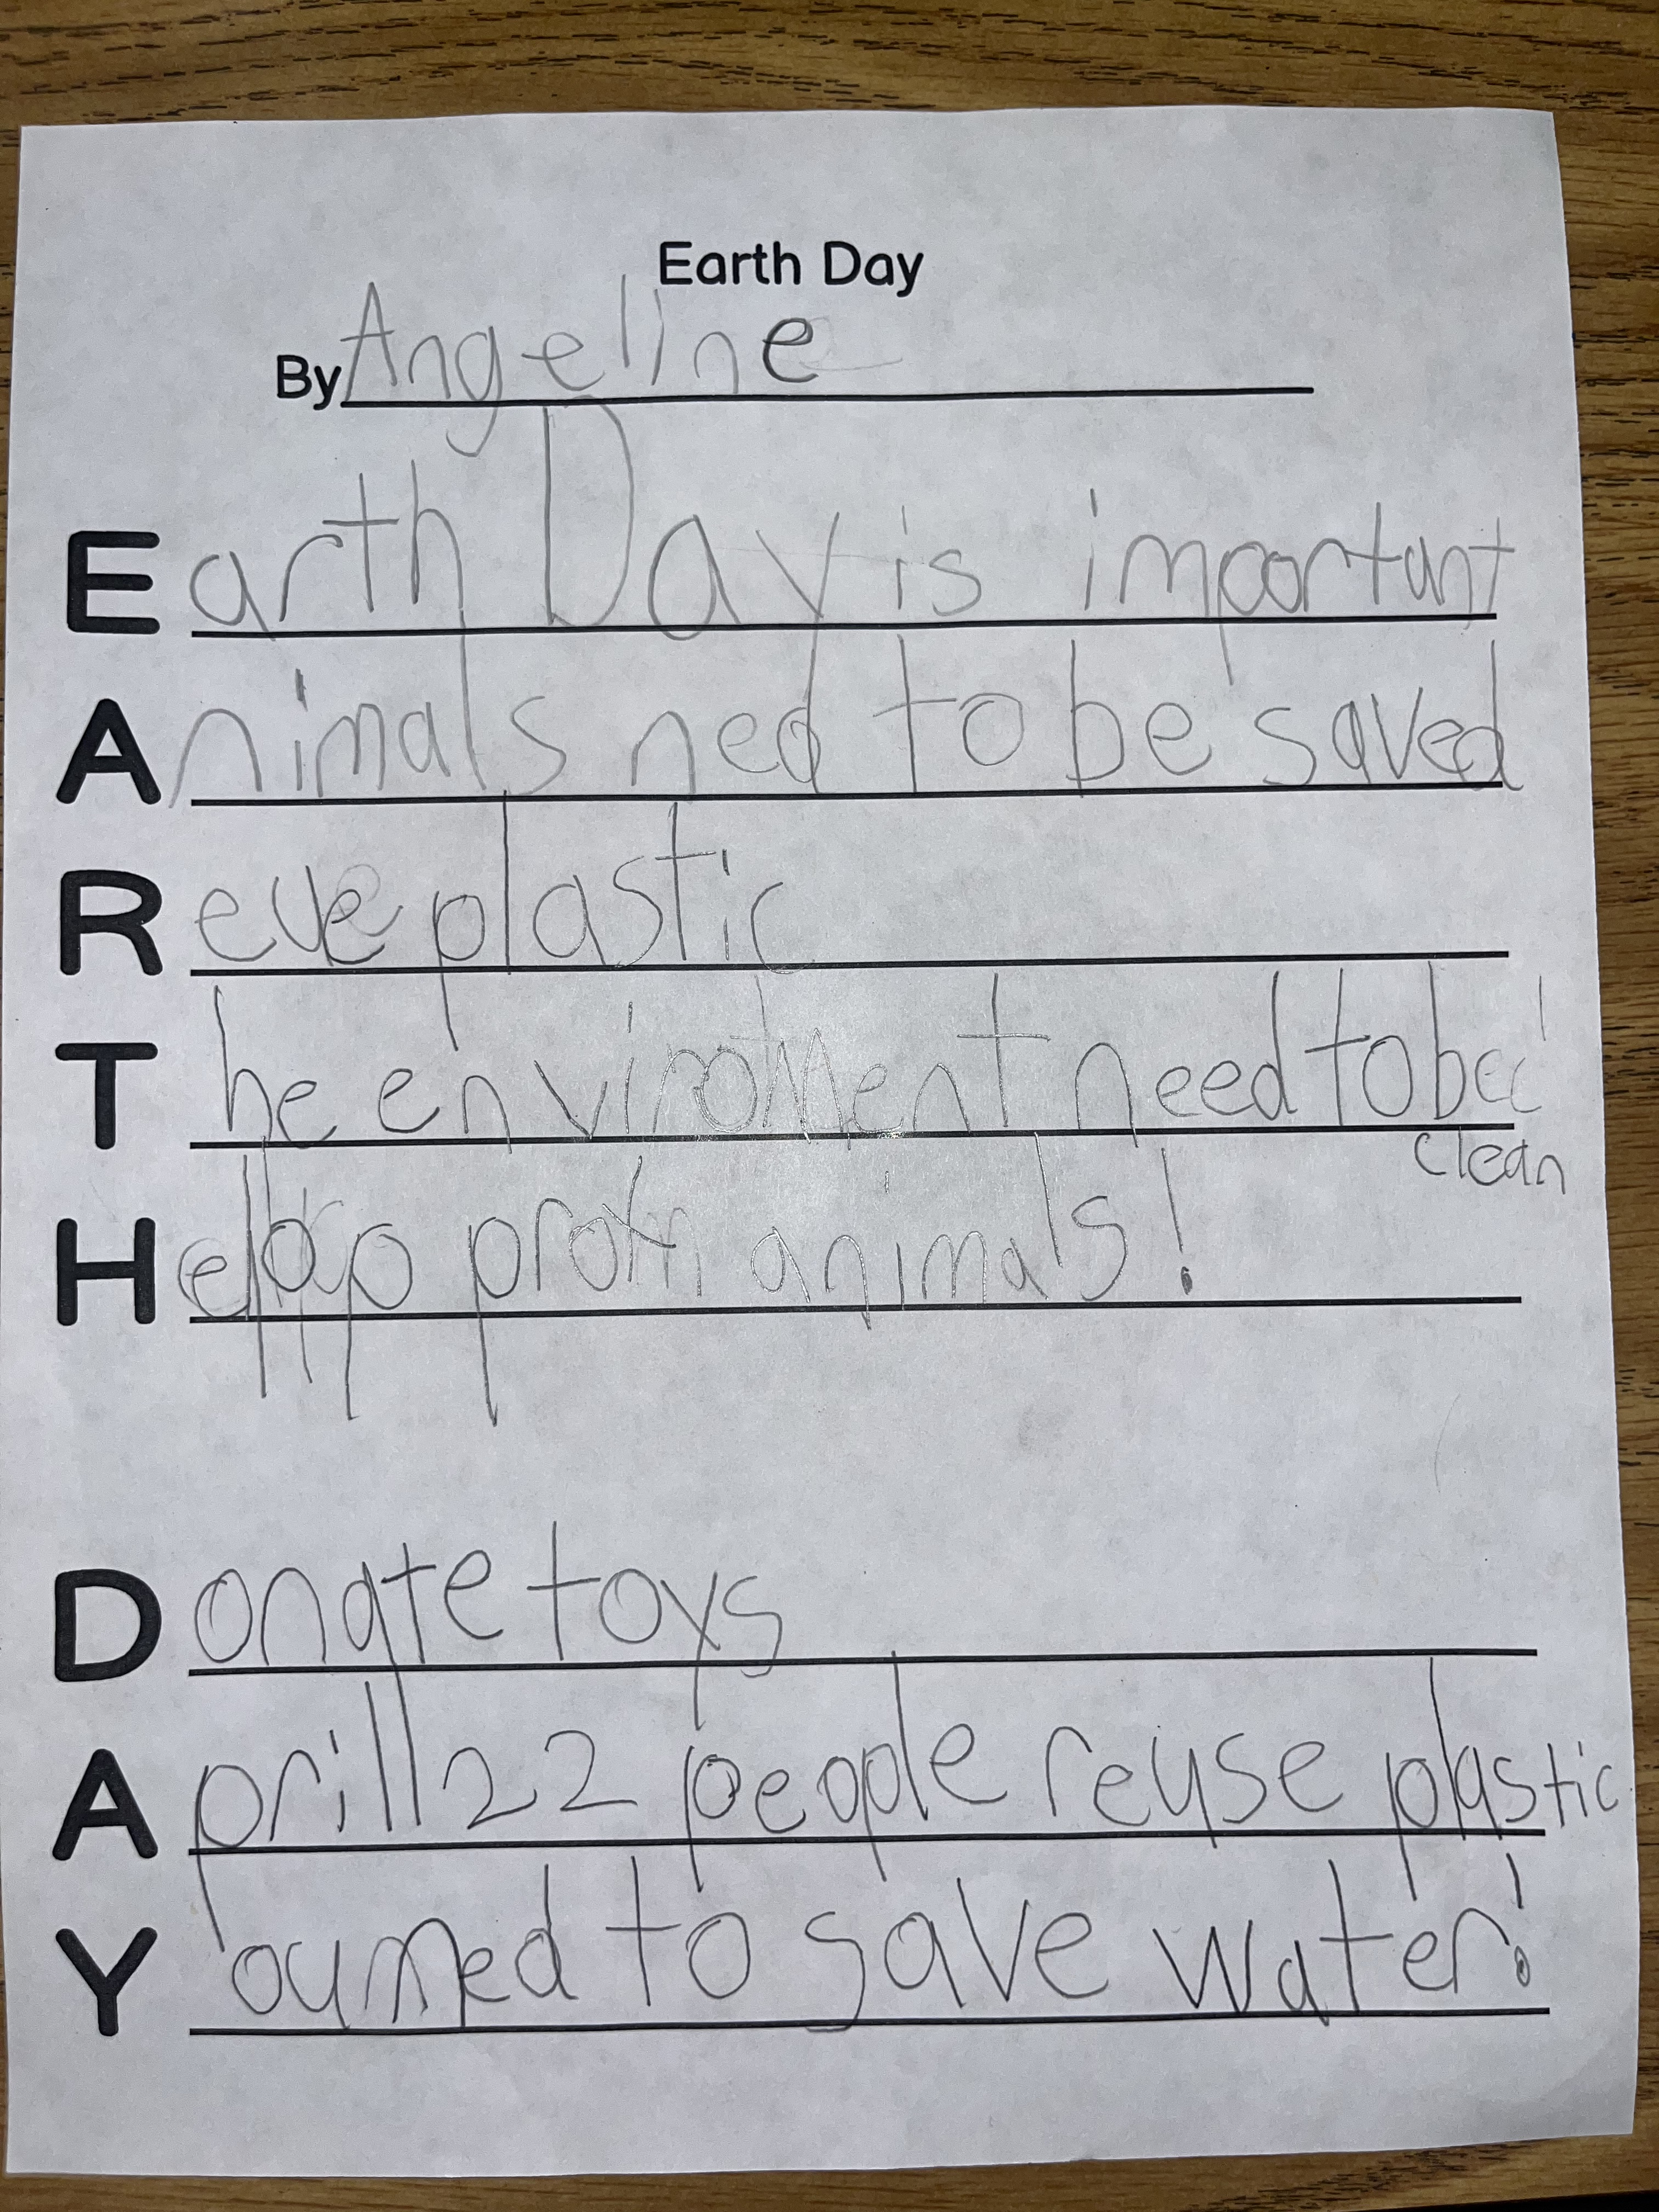 Earth Day
By Angeline
Earth Day is important
Animals ned to be saved
Reve plastic
The envirotment need to be
clean
Help animals!
Donate toys
Aprill 22 people reuse plastic
You ned to save water!